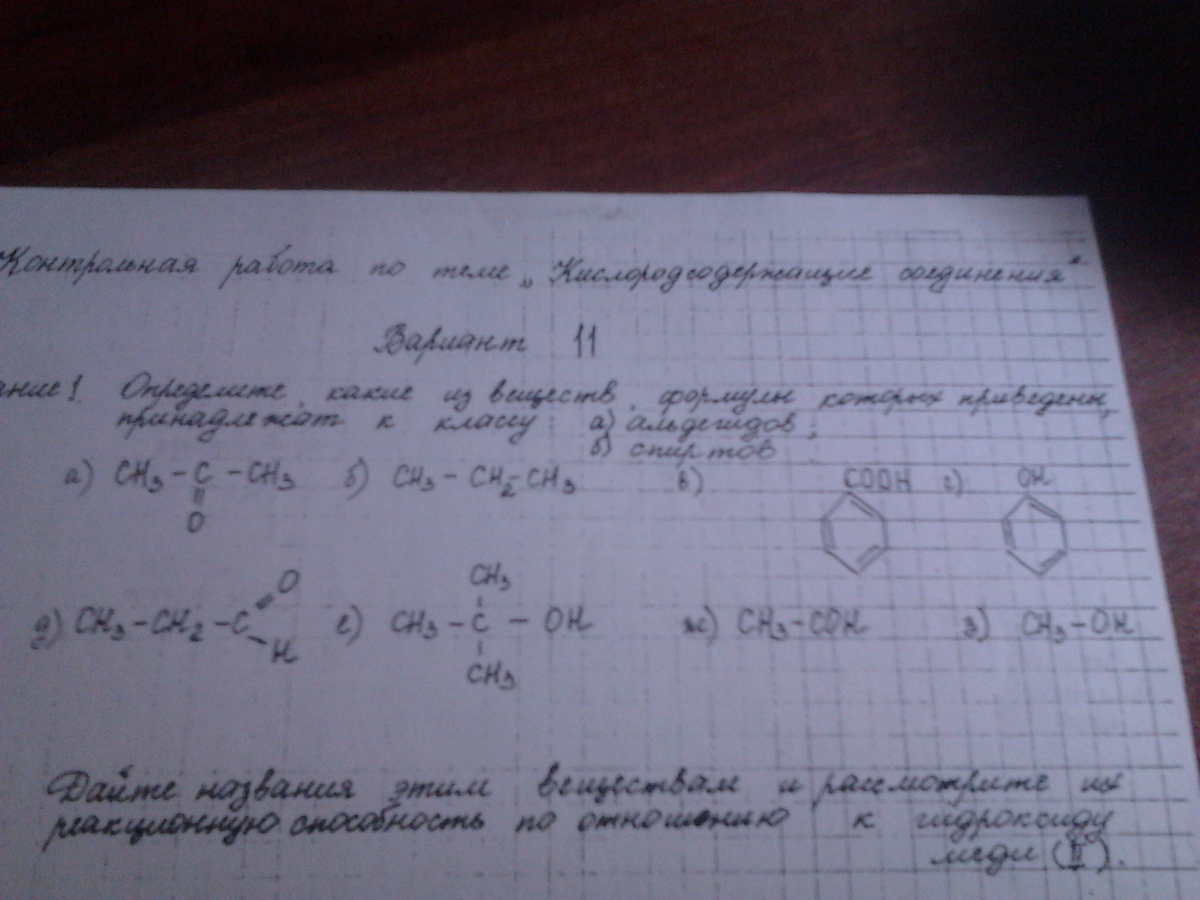 Контрольная работа по теме „Кислородсодержащие соединения"
Вариант 11
ание 1. Определите, какие из веществ, формулы которых приведены,
принадлежат к классу: а) альдегидов;
б) спиртов
а) CH3 - C - CH3 б) CH3 - CH2 - CH3 в) COOH г) OH
O
O
CH3
д) CH3 - CH2 - C е) CH3 - C - OH ж) CH3 - COH з) CH3 - OH
H
CH3
Дайте названия этим веществам и рассмотрите их
реакционную способность по отношению к гидроксиду
меди (II).